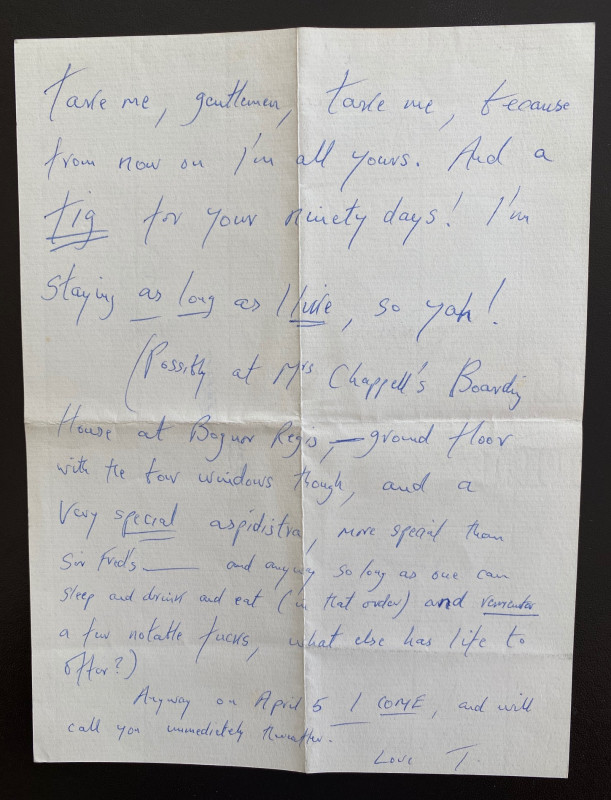 Take me, gentlemen, take me, because
from now on I'm all yours. And a
fig for your ninety days! I'm
staying as long as I live, so yah!
(Possibly at Mrs Chappell's Boarding
House at Bognor Regis, — ground floor
with the four windows though, and a
very special aspidistra, more special than
Sir Fred's —— and anyway so long as one can
sleep and drink and eat (in that order) and remember
a few notable fucks, what else has life to
offer?)
Anyway on April 5 I COME, and will
call you immediately thereafter.
Love T.